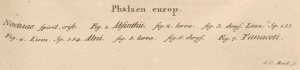 Phalaen europ.
Noctuae spirit. crist. Fig. 1. Absinthii. fig. 2. larva. fig. 3. chrys. Linn. Sp. 133.
Fig. 4. Linn. Sp. 134. Alni. fig. 5. larva. fig. 6. chrys. Fig. 7. Tanaceti.